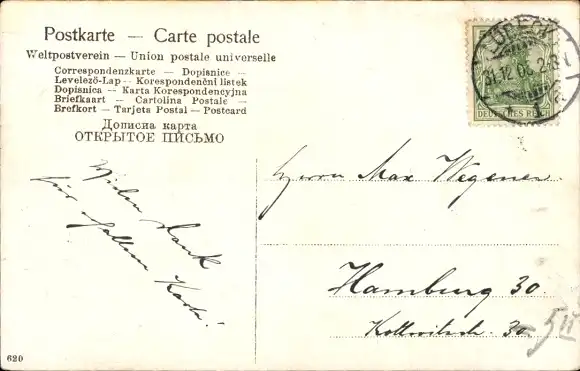 Postkarte — Carte postale
Weltpostverein — Union postale universelle
Correspondenzkarte — Dopisnice —
Levelező-Lap — Korespondenční listek
Dopisnica — Karta Korespondencyjna
Briefkaart — Cartolina Postale —
Brefkort — Tarjeta Postal — Postcard
Дописна карта
ОТКРЫТОЕ ПИСЬМО
LÜBECK
31.12.06. 2-3
DEUTSCHES REICH
Herrn Max Wegener
Hamburg 30.
30
Vielen Dank
für Karte!
620